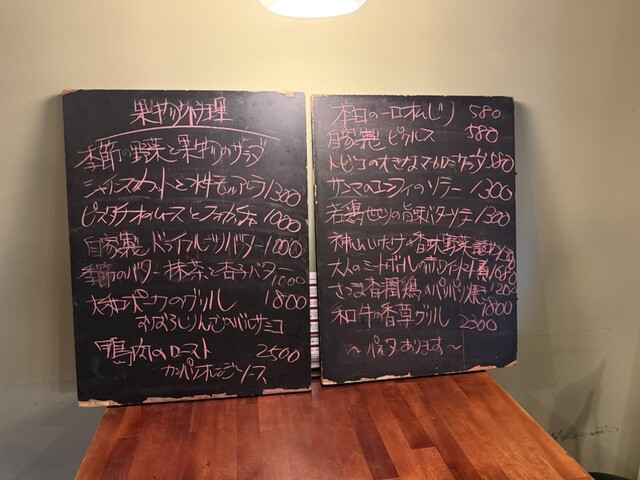 果物のお料理
季節の野菜と果物のサラダ
シャインマスカットと水牛モッツァレラ 1300
ピスタチオのムースとフォカッチャ 1000
自家製ドライフルーツバター 1000
季節のバター 抹茶と杏子バター 1000
大和ポークのグリル 1800
おぼろしりんごのバルサミコ
鴨肉のロースト 2500
カシスオレンジソース
本日の一口 580
自家製ピクルス 580
トビコの大きなマカロニサラダ 580
サンマのコンフィのソテー 1300
若鶏せせりの旨味バターソテー 1300
神山しいたけの香味野菜
大人のミートボールのホワイトソース煮 1680
さつま香潤鶏のパリパリ焼き 1200
1800
和牛の香草グリル 2300
〜パスタあります〜